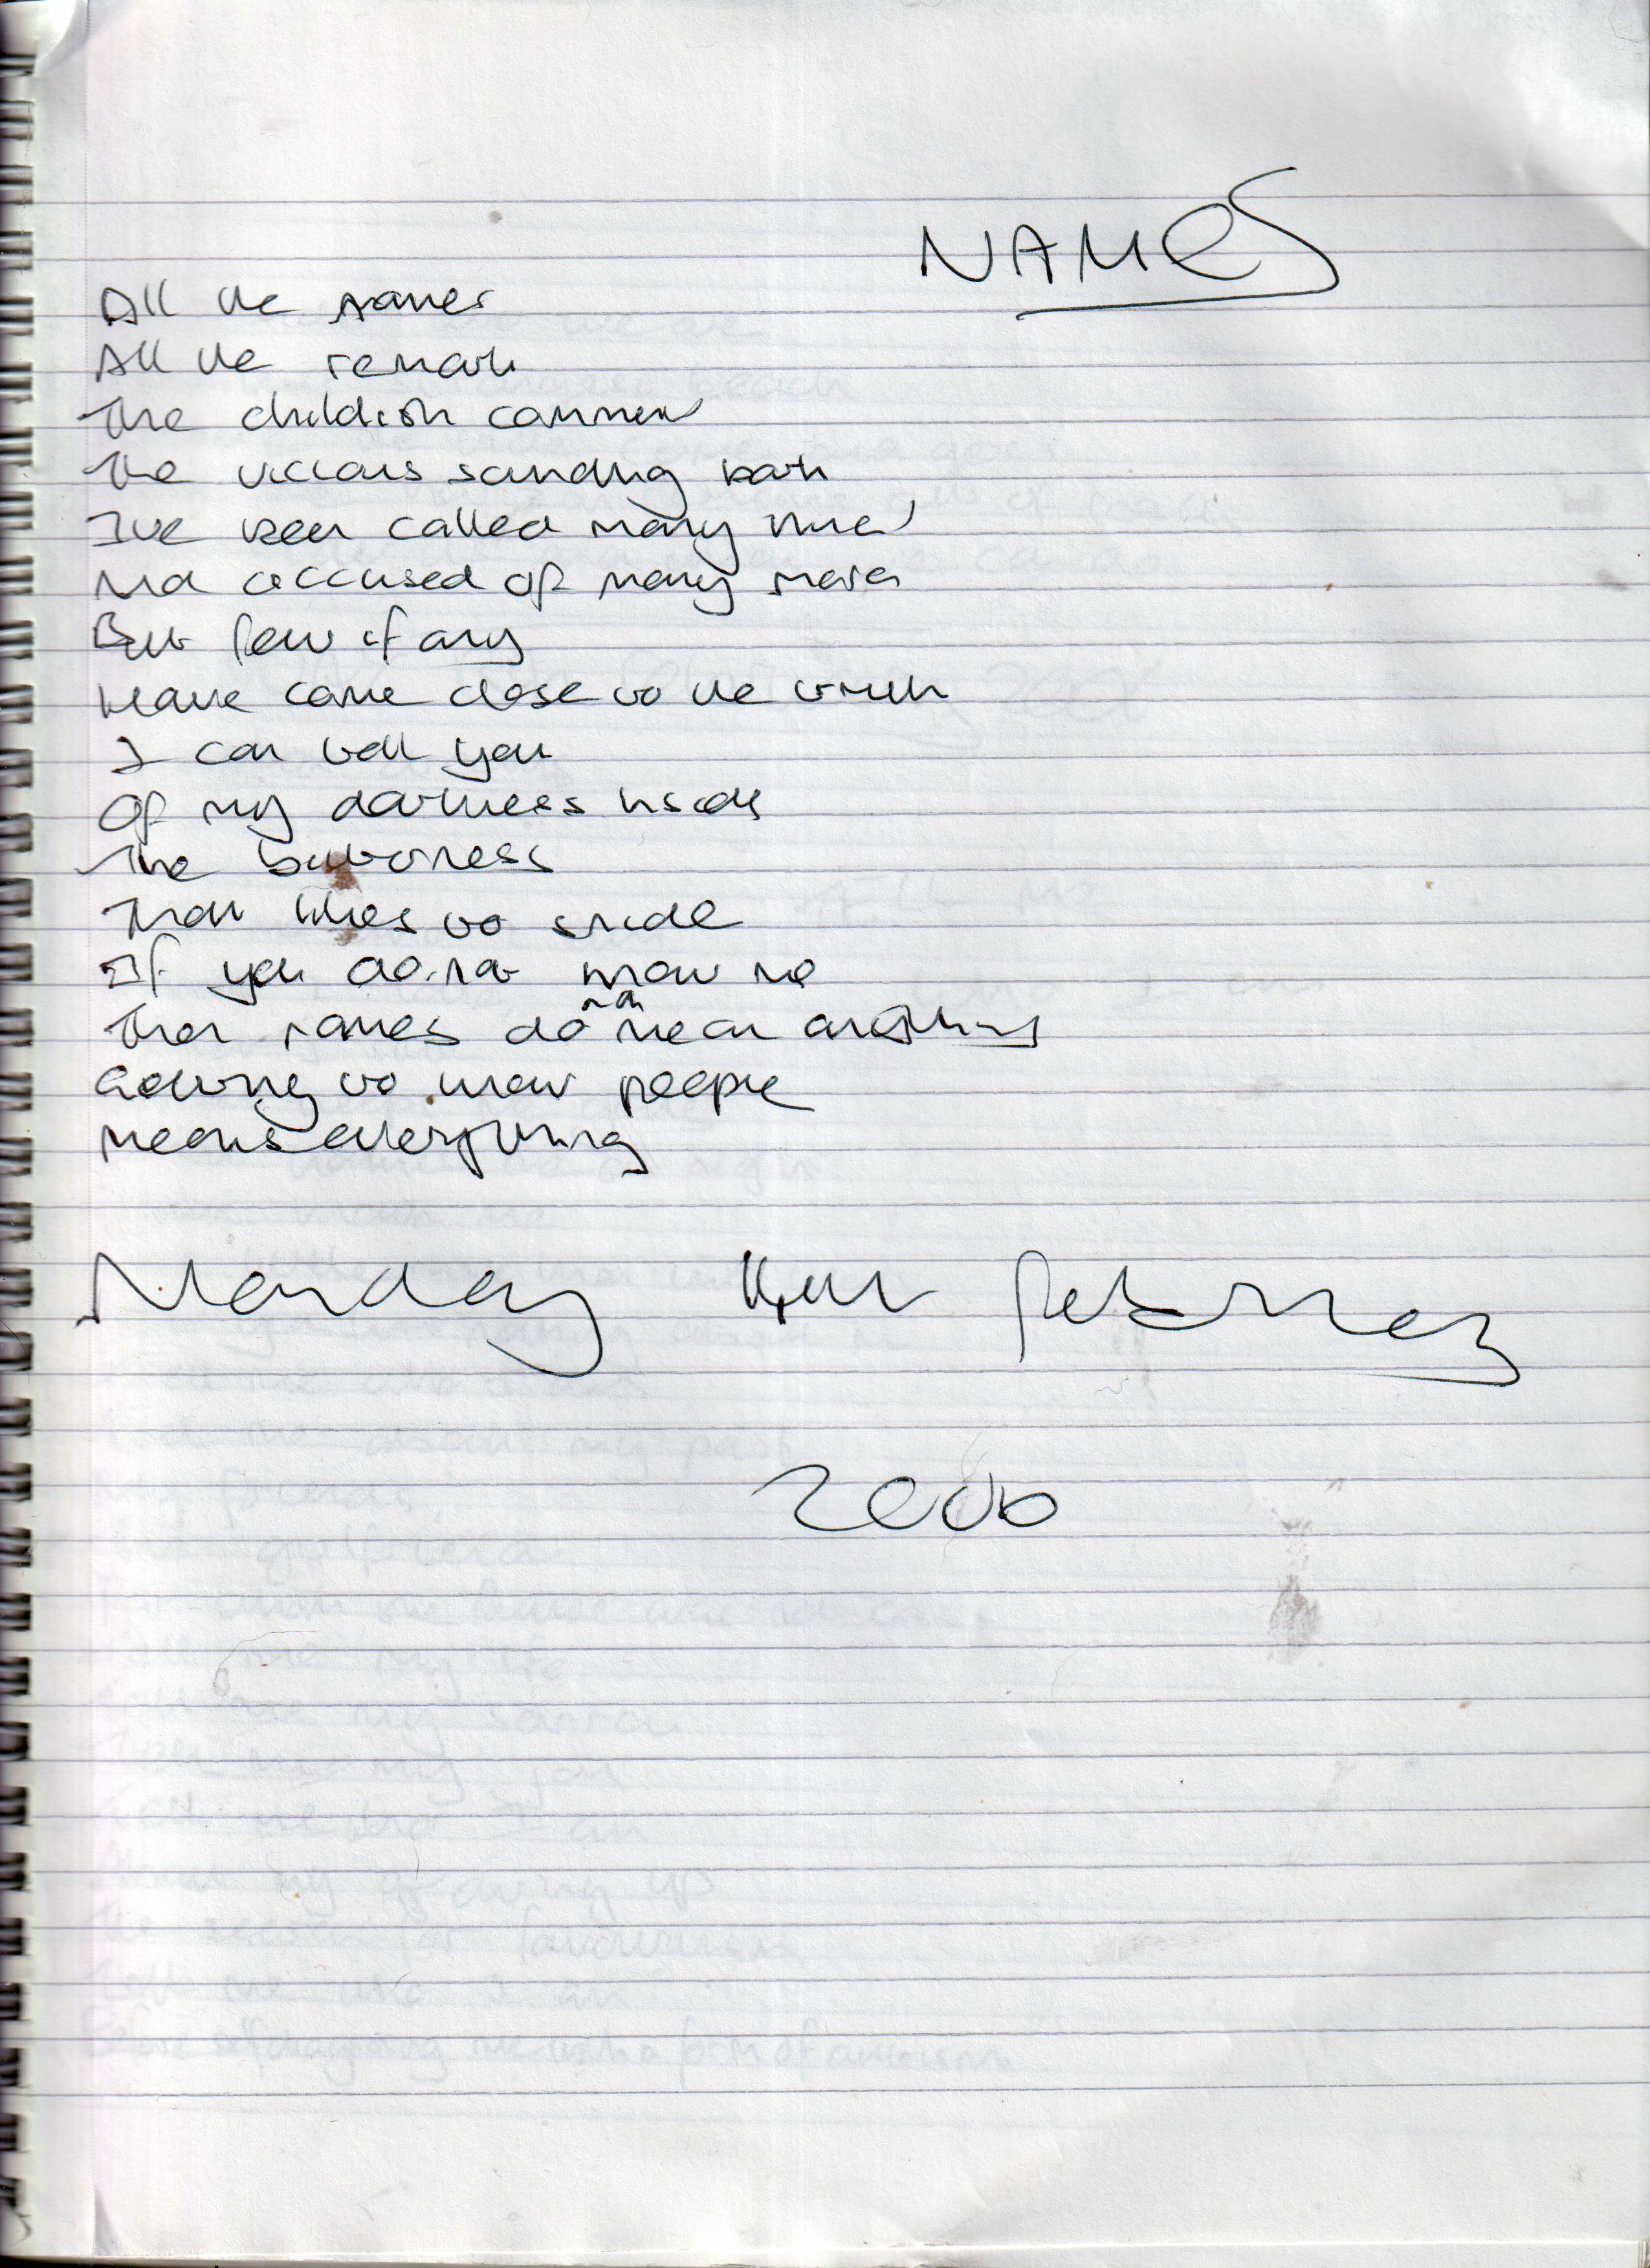 NAMES
All the names
All the remarks
The childish comment
The vicious sounding bark
I've been called many times
And accused of many more
But few if any
Have come close to the truth
I can tell you
Of my darkness inside
The bitterness
That likes to
If you do not know me
Then names do not mean anything
Getting to know people
means everything
Monday February
2000